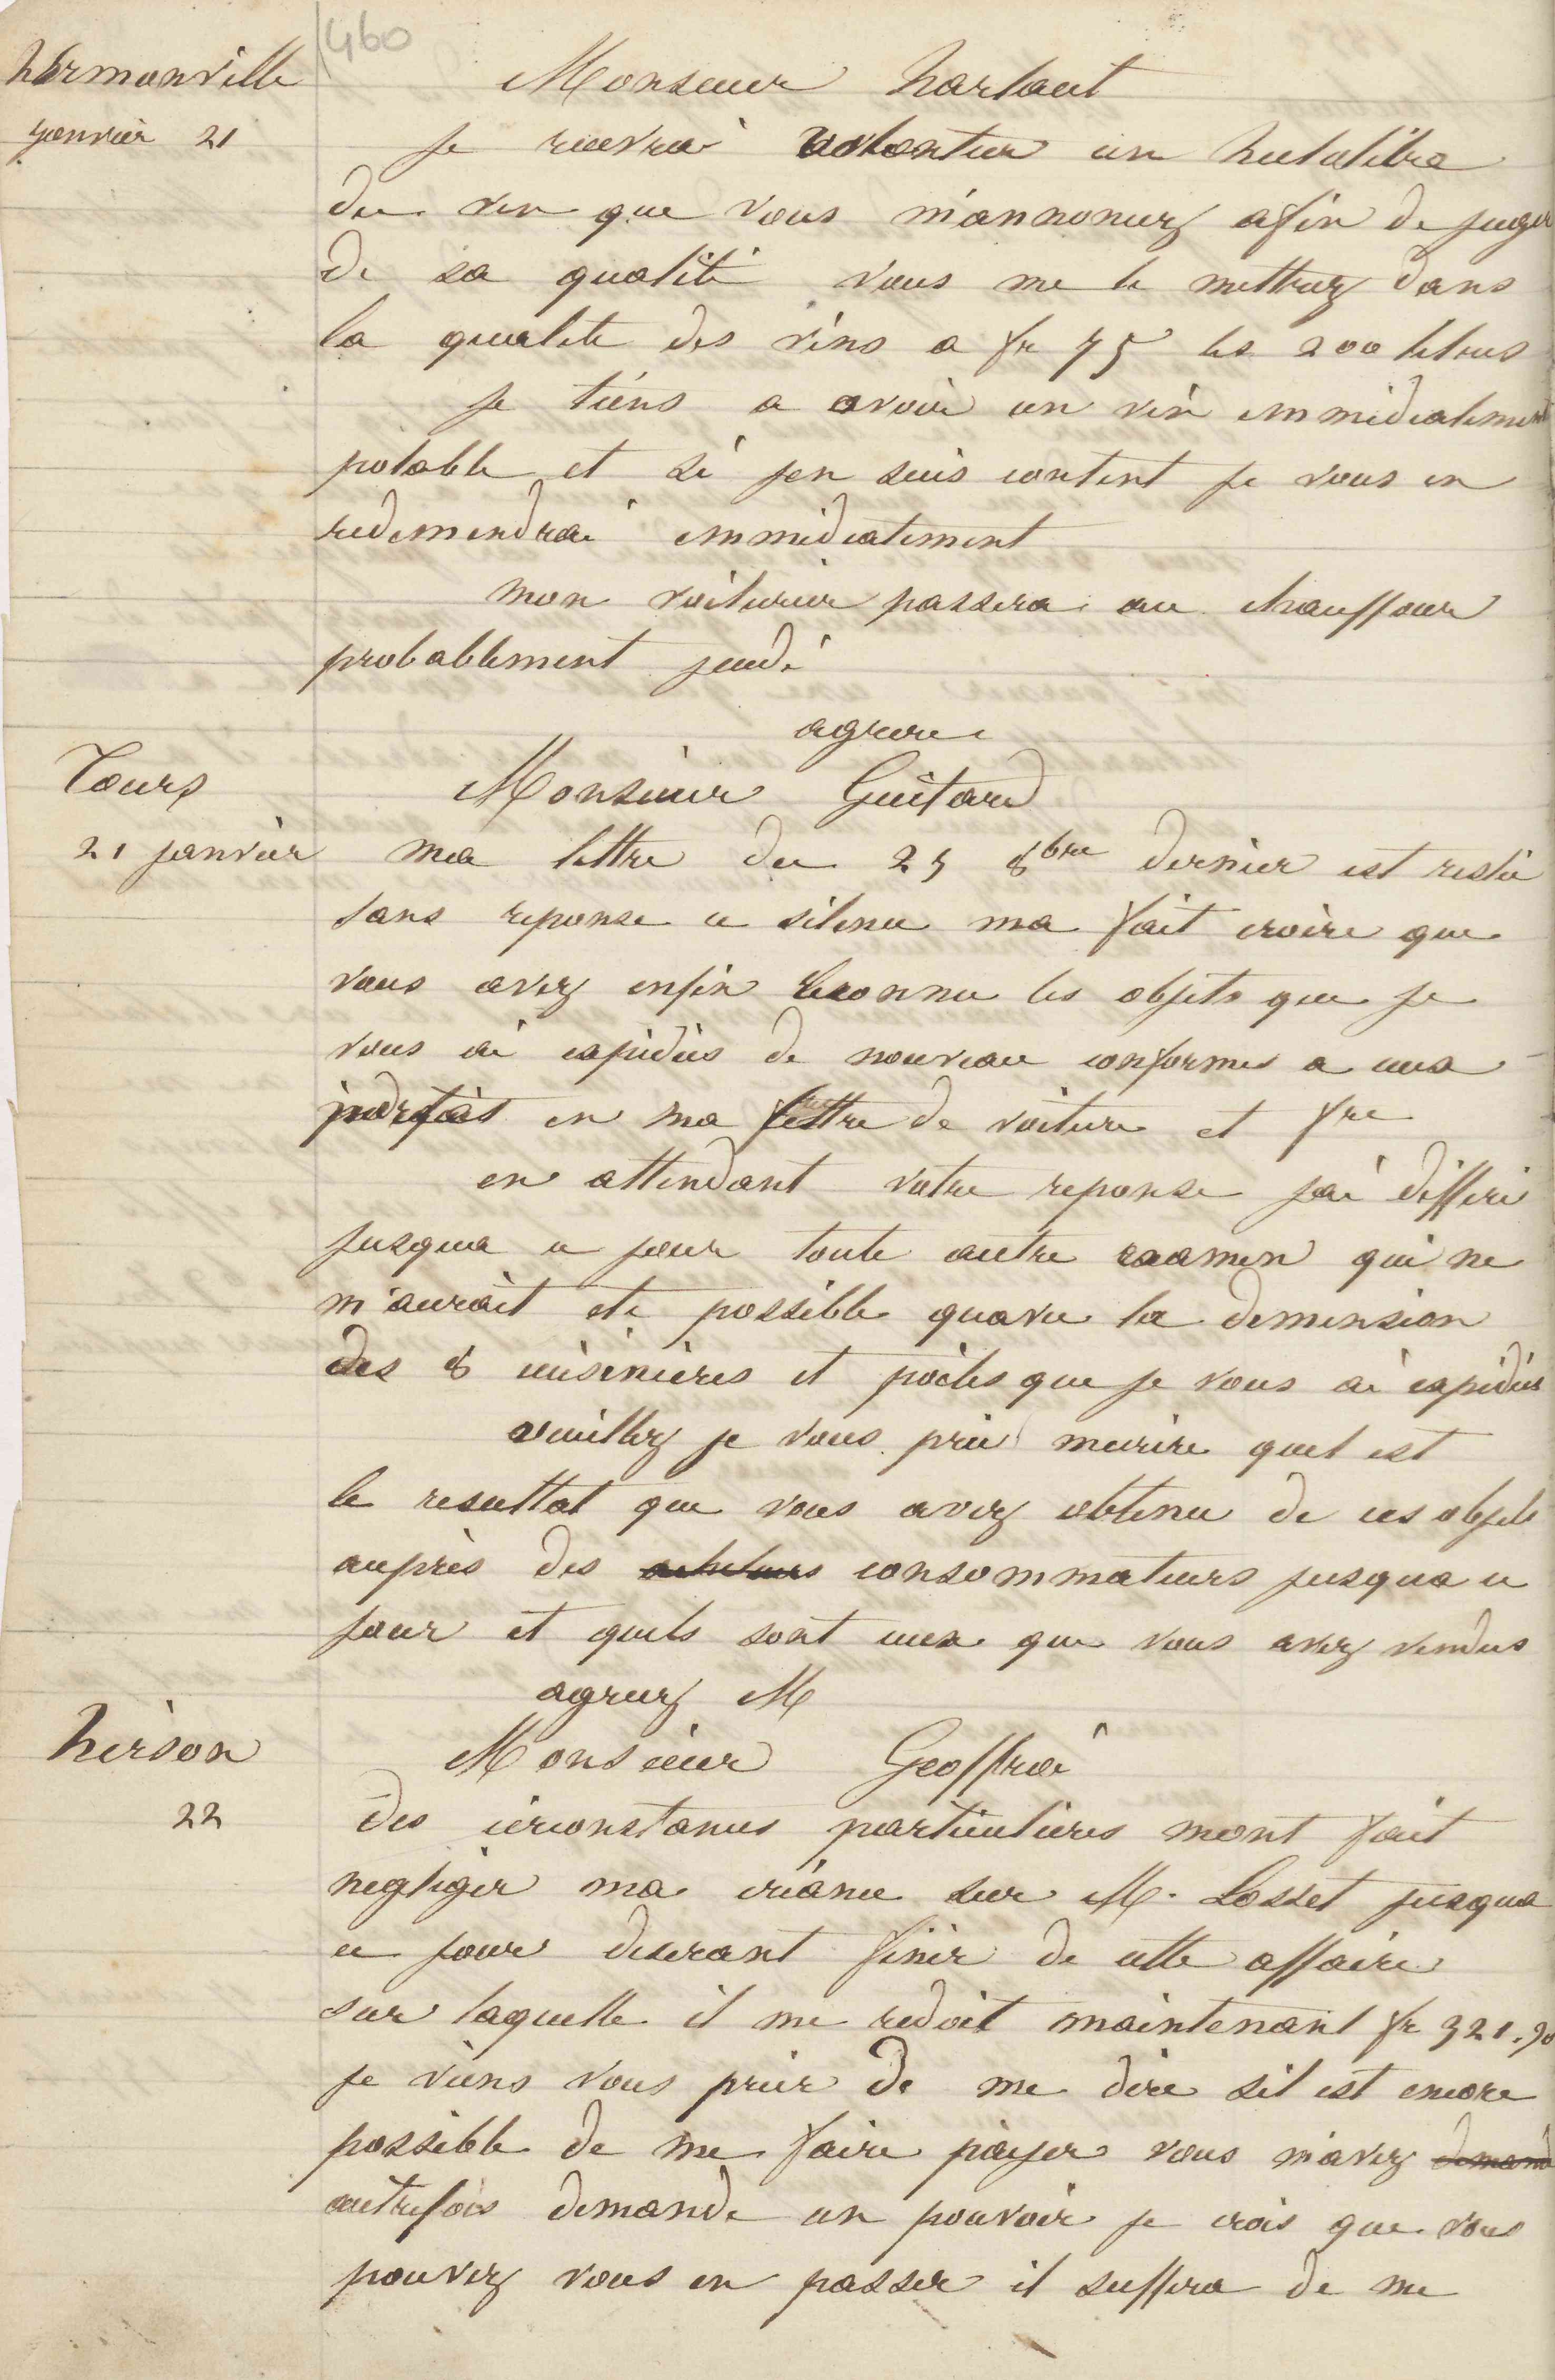 460
hermonville
janvier 21
Monsieur harlaut
je recevrai volontier un hectolitre
du vin que vous m'annoncez afin de juger
de sa qualité vous me le mettrez dans
la qualite des vins a fr 75 les 200 litres
je tiens a avoir un vin immediatement
potable et si jen suis content je vous en
redemendrai immediatement
mon voiturier passera au chauffour
probablement jeudi
agreer
Tours
21 janvier
Monsieur Guitard
ma lettre du 25 8bre dernier est restée
sans reponse ce silence ma fait croire que
vous avez enfin reconnu les objets que je
vous ai expédiés de nouveau conformes a ceux
portés en ma lettre de voiture et fre
en attendant votre reponse jai differé
jusqua ce jour toute autre examen qui ne
m'aurait ete possible quavec la demension
des 8 cuisinieres et poëles que je vous ai expédiés
veuillez je vous prie mecrire quel est
le resultat que vous avez obtenu de ces objets
auprès des acheteurs consommateurs jusqua ce
jour et quels sont ceux que vous avez vendus
agreez M
hirson
22
Monsieur Geoffroi
Des circonstances particulieres mont fait
negliger ma créance sur M. Losset jusqua
ce jour desirant finir de cette affaire
sur laquelle il me redoit maintenant fr 321.90
je viens vous prier de me dire sil est encore
possible de me faire payer vous m'avez demand
autrefois demande un pouvoir je crois que vous
pouvez vous en passer il suffira de me